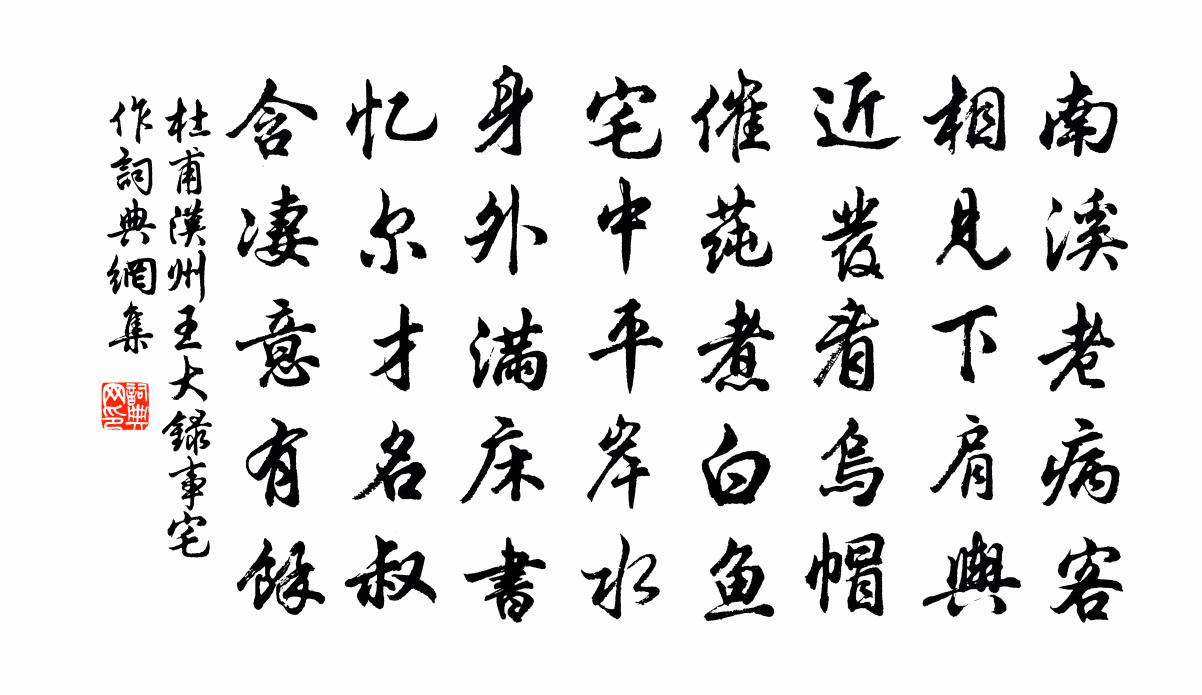 南溪老病客
相见下肩舆
近发看乌帽
催莼煮白鱼
宅中平岸水
身外满床书
忆尔才名叔
含凄意有余
杜甫漢州王大錄事宅
作詞典網集
詞典网印